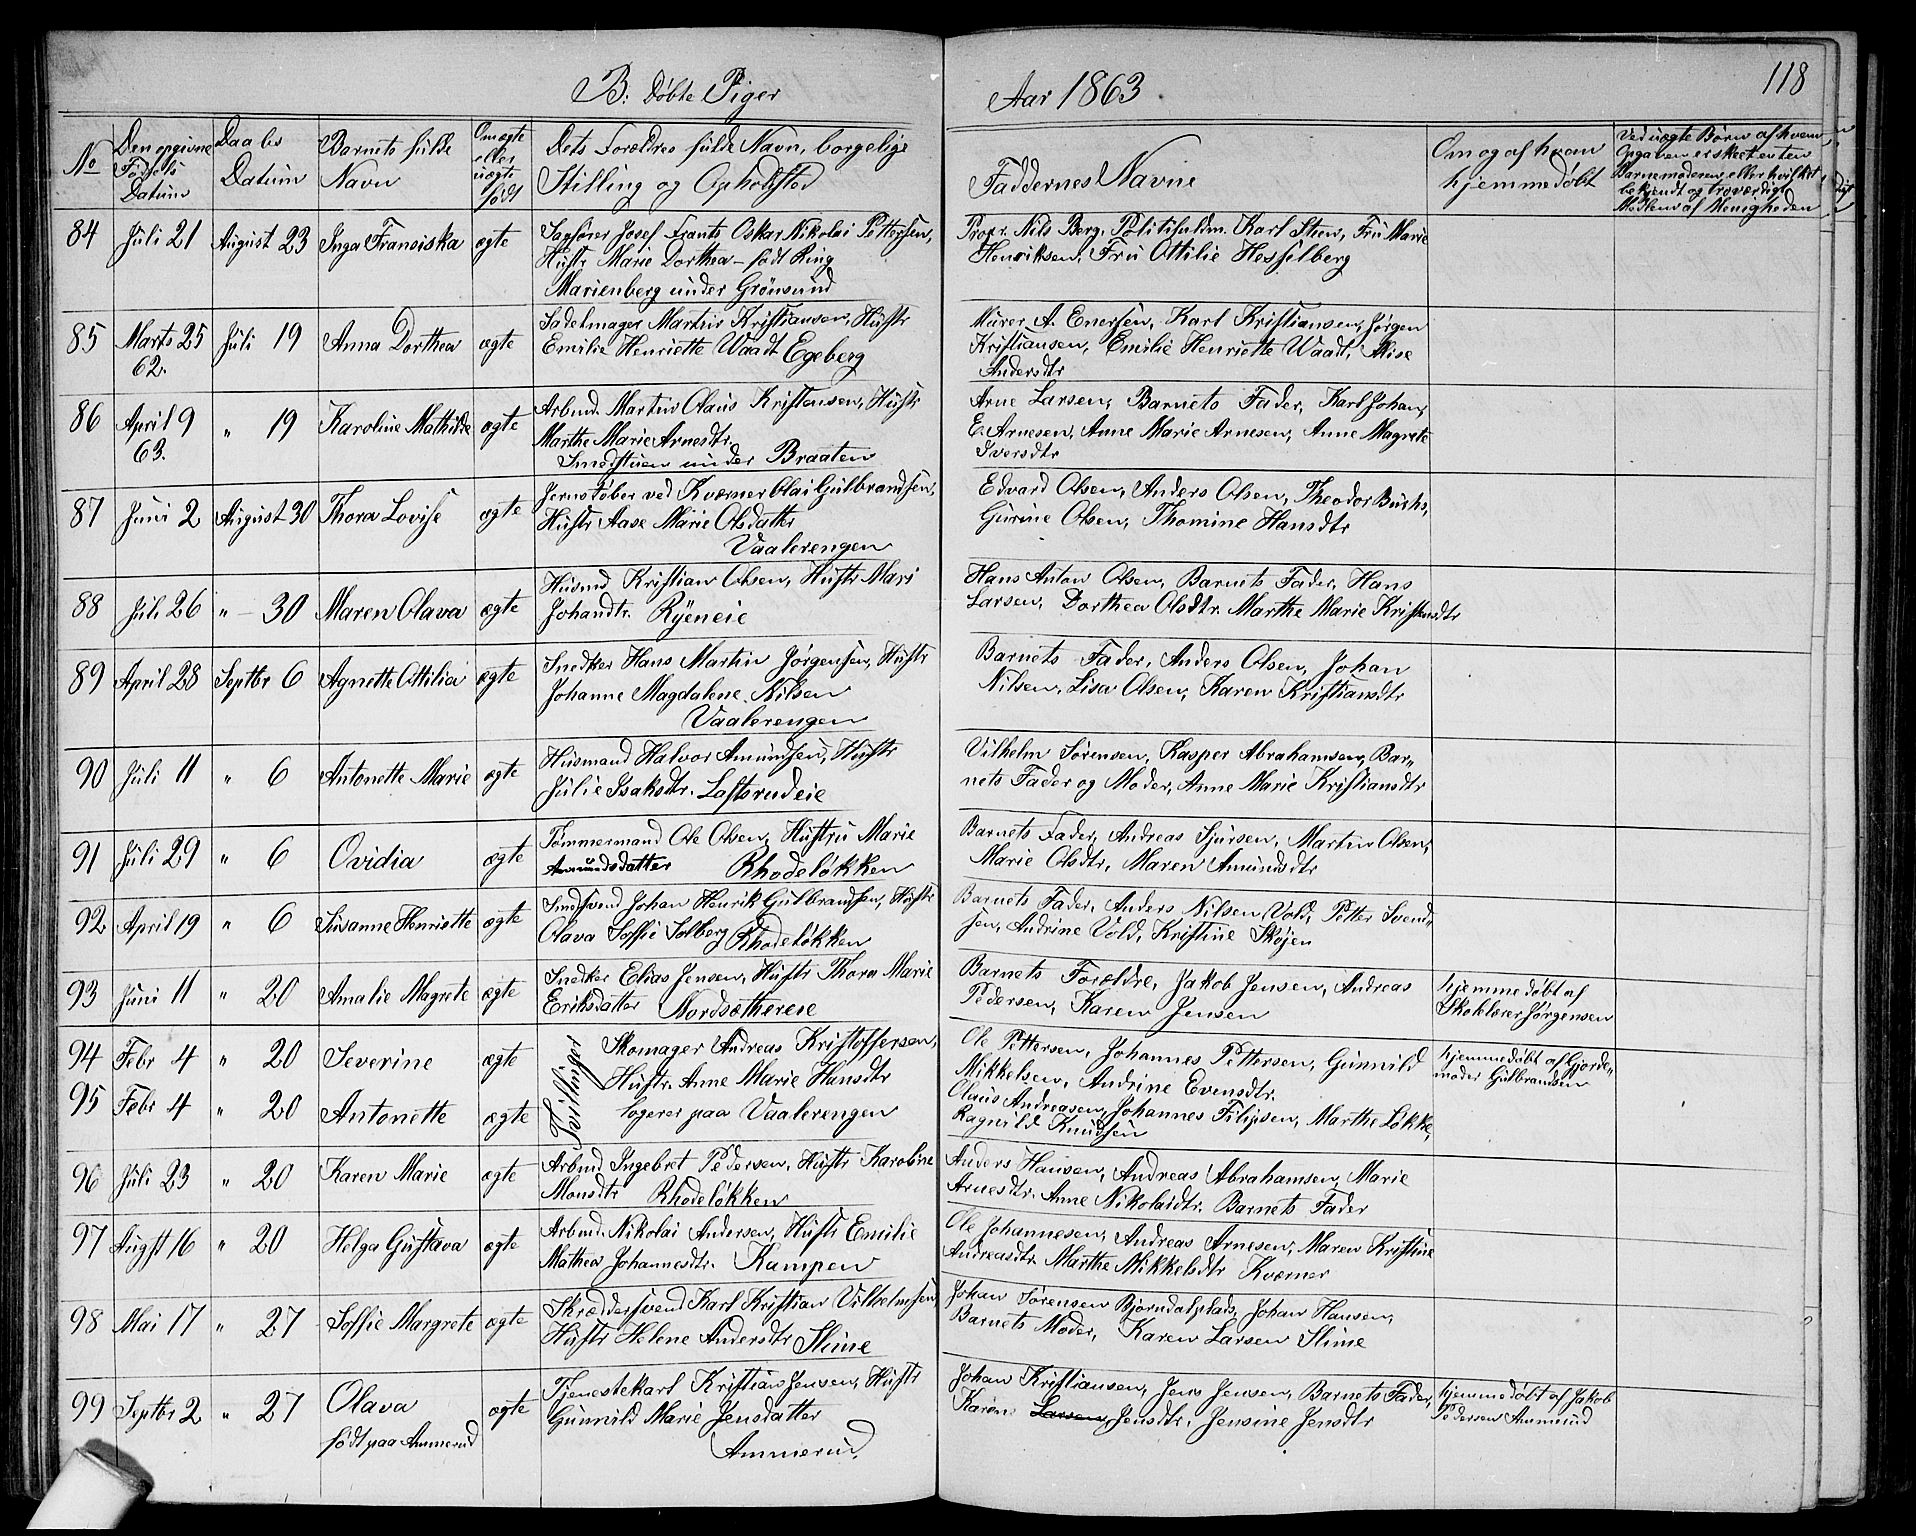 B: Døbte Piger
Aar 1863
118
No
Den opgivne
Fødsels
Datum
Daabs
Datum
Barnets fulde
Navn
Om ægte
eller
uægte
født
Dets Forældres fulde Navn, borgelige
Stilling og Opholdsted
Faddernes Navne
Om og af hvem
hjemmedøbt
Ved uægte Børn af hvem
Opgaven er skeet enten
Barnemoderen, eller hvilket
bekjendt og troværdigt
Medlem af Menigheden
84 Juli 21 August 23 Inga Fransiska ægte
Sagfører Josef Frants Oskar Nikolai Pettersen,
Hustr Marie Dorthea - født Ring
Marienberg under Grönsund
Propr. Nils Berg, Politifuldm. Karl Steen, Fru Marie
Henriksen, Fru Ottilie Hesselberg
85 Marts 25 Juli 19 Anna Dorthea ægte
62.
Sadelmager Martin Kristiansen, Hustr
Emilie Henriette Waadt Egeberg
Murer A. Enersen, Karl Kristiansen, Jørgen
Kristiansen, Emilie Henriette Waadt, Alise
Andersdtr
86 April 9 " 19 Karoline Mathilde ægte
63.
Arbmd. Martin Olaus Kristensen, Hustr
Marthe Marie Arnesdtr.
Smedstuen under Braaten
Arne Larsen, Barnets Fader, Karl Johan,
E. Arnesen, Anne Marie Arnesen, Anne Magrete
Iversdtr
87 Juni 2 August 30 Thora Lovise ægte
Jernstøber ved Kværner Olai Gulbrandsen,
Hustr Aase Marie Olsdatter
Vaalerengen
Edvard Olsen, Anders Olsen, Theodor Buchs,
Gurine Olsen, Thomine Hansdtr
88 Juli 26 " - 30 Maren Olava ægte
Husmd Kristian Olsen, Hustr Mari
Johandtr. Ryeneie
Hans Anton Olsen, Barnets Fader, Hans
Larsen, Dorthea Olsdtr. Marthe Marie Kristensdtr
89 April 28 Septbr 6 Agnette Ottilia ægte
Snedker Hans Martin Jørgensen, Hustr
Johanne Magdalene Nilsen
Vaalerengen
Barnets Fader, Anders Olsen, Johan
Nilsen, Lisa Olsen, Karen Kristiansdtr
90 Juli 11 " 6 Antonette Marie ægte
Husmand Halvor Amundsen, Hustr
Julie Isaksdtr. Loftsrudeie
Vilhelm Sørensen, Kasper Abrahamsen, Bar„
nets Fader og Moder, Anne Marie Kristiansdtr
91 Juli 29 " 6 Ovidia ægte
Tømmermand Ole Olsen, Hustru Marie
Amundsdatter Rhodeløkken
Barnets Fader, Andreas Sjursen, Martin Olsen,
Marie Olsdtr, Maren Amundsdtr
92 April 19 " 6 Susanne Henriette ægte
Smedsvend Johan Henrik Gulbrandsen, Hustr
Olava Soffie Solberg Rhodeløkken
Barnets Fader, Anders Nilsen Vold, Petter Svend„
sen, Andrine Vold, Kristine Skøjen
93 Juni 11 " 20 Amalie Magrete ægte
Snedker Elias Jensen, Hustr Thora Marie
Eriksdatter Nordsæthereie
Barnets Forældre, Jakob Jensen, Andreas
Pedersen, Karen Jensen
hjemmedøbt af
Skolelærer Jørgensen
94 Febr 4 " 20 Severine ægte
95 Febr 4 " 20 Antonette ægte
Tvillinger
Skomager Andreas Kristoffersen,
Hustr. Anne Marie Hansdtr
logerer paa Vaalerengen
Ole Pettersen, Johannes Pettersen, Gunnild
Mikkelsen, Andrine Evensdtr.
Olaus Andreasen, Johannes Filipsen, Marthe Løkke,
Ragnild Knudsen
hjemmedøbt af Gjorde„
moder Gulbrandsen
96 Juli 23 " 20 Karen Marie ægte
Arbmd Ingebret Pedersen, Hustr Karoline
Monsdtr Rhodeløkken
Anders Hansen, Andreas Abrahamsen, Marie
Arnesdtr. Anne Nikolaidtr. Barnets Fader
97 Augst 16 " 20 Helga Gustava ægte
Arbmd. Nikolai Andersen, Hustr Emilie
Mathea Johannesdtr. Kampen
Ole Johannesen, Andreas Arnesen, Maren Kristine
Andreasdtr. Marthe Mikkelsdtr Kværner
98 Mai 17 " 27 Soffie Margrete ægte
Skræddersvend Karl Kristian Vilhelmsen,
Hustr Helene Andersdtr Slime
Johan Sørensen Bjorndalsplads, Johan Hansen,
Barnets Moder, Karen Larsen Slime
99 Septbr 2 " 27 Olava ægte
født paa Ammerud
Tjenestekarl Kristian Jensen, Hustr
Gunnild Marie Jensdatter
Ammerud,
Johan Kristiansen, Jens Jensen, Barnets Fader,
Karen Larsen, Jensdtr, Jensine Jensdtr
hjemmedøbt af Jakob
Pedersen Ammerud